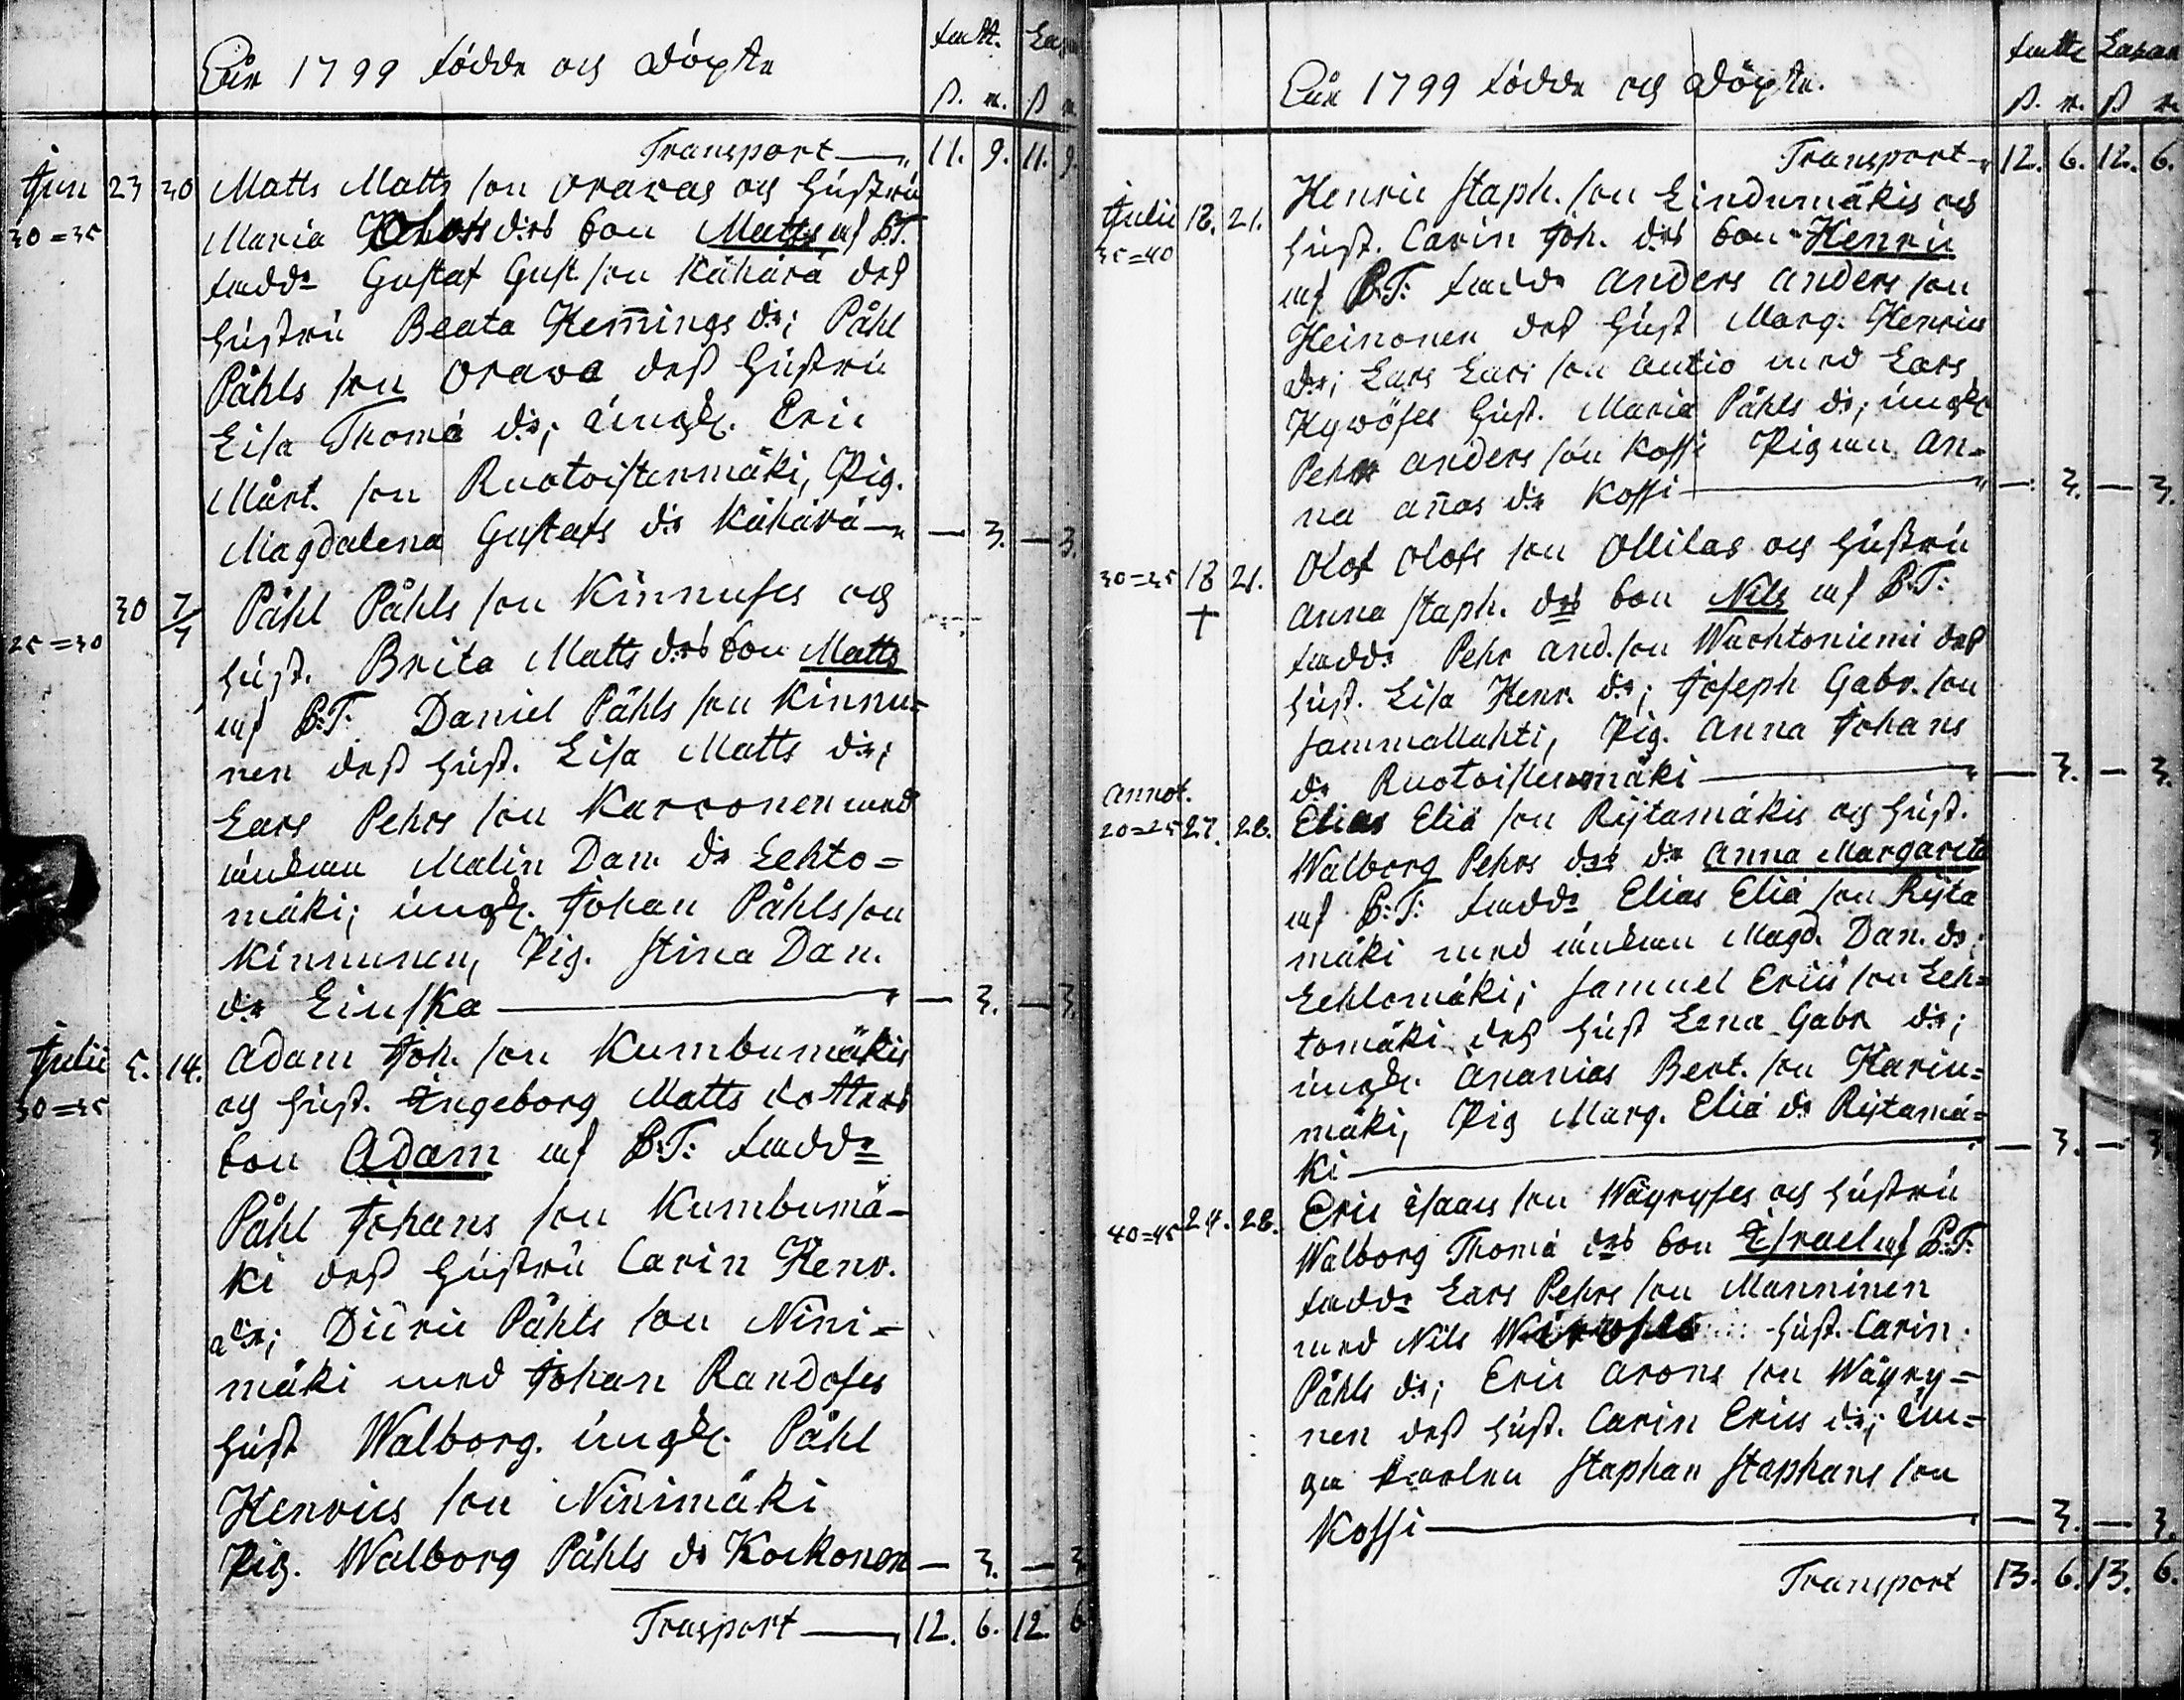 Åhr 1799 födde och döpte
fatt. Las
ß. r. ß r
Transport — 11. 9. 11. 9.
Jun 23 30 Matts Matts son Orawas och hustru
30=35 Maria Olofs drs son Matts af B.T.
fadd: Gustaf Gust son Kähärä dess
hustru Beata Hemmings dr; Påhl
Påhls son Orawa dess hustru
Lisa Thomä dr; ungk. Eric
Mårt. son Ruotoistenmäki, Pig.
Magdalena Gustafs dr Kähärä — — 3. — 3.
30 7/7 Påhl Påhls son Kinnuses och
25=30 hust. Brita Matts drs son Matts
af B:T: Daniel Påhls son Kinnu=
nen dess hust. Lisa Matts dr;
Lars Pehrs son Karronen med
änkan Malin Dan. dr Lehto=
mäki; ungk. Johan Påhls son
Kinnunen, Pig. Stina Dan.
dr Linska — — 3. — 3.
Julii 5. 14. Adam Joh. son Kumbumäkis
30=35 och hust. Ingeborg Matts dotters
son Adam af B:T: fadd:
Påhl Johans son Kumbumä-
ki dess hustru Carin Henr.
dr; Diiric Påhls son Nini=
mäki med Johan Randoses
hust Walborg. ungk. Påhl
Henrics son Ninimäki
Pig. Walborg Påhls dr Kockonen — 3. — 3
Trasport — 12. 6. 12. 6
Åhr 1799 födde och döpte.
fatte Lasar
ß. r. ß r.
Transport — 12. 6. 12. 6.
Julii 18. 21. Henric Staph. son Lindumäkis och
35=40 hust. Carin Joh. drs son Henric
af B:T: fadd: Anders Anders son
Heinonen dess hust Marg. Henrics
dr; Lars Lars son Autio med Lars
Kywöses hust. Maria Påhls dr; ungk
Pehr Anders son Kossi Pigan An=
na Annas dr Kossi — — 3. — 3.
30=35 18 21. Olof Olofs son Ollilas och hustru
+ Anna Staph. drs son Nils af B:T:
fadd: Pehr And. son Wachtoniemi dess
hust. Lisa Henr. dr; Joseph Gabr. son
Sammallahti, Pig. Anna Johans
dr Ruotoistenmäki — — 3. — 3.
Annot.
20=25 27. 28. Elias Eliä son Rijtamäkis och hust.
Walborg Pehrs drs dr Anna Margareta
af B:T: fadd: Elias Eliä son Rijta
mäki med änkan Magd. Dan. dr:
Lehtomäki; Samuel Erics son Leh=
tomäki dess hust Lena Gabr dr;
ungk. Ananias Bert. son Harju=
mäki, Pig Marg. Eliä dr Rijtamä=
ki — — 3. — 3
40=45 24. 28. Eric Isaacs son Wäyryses och hustru
Walborg Thomä drs son Israel af B:T:
fadd: Lars Pehrs son Manninen
med Nils hust. Carin
Påhls dr; Eric Arons son Wäyry=
nen dess hust. Carin Erics dr; un=
ga karlen Staphan Staphans son
Kossi — — 3. — 3.
Transport 13. 6. 13. 6.